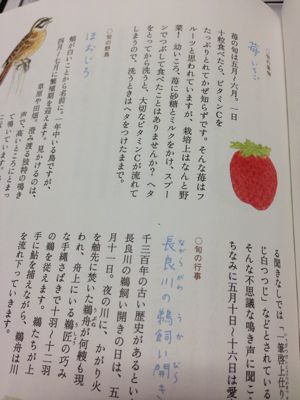 苺 いちご
苺の旬は五月〜六月。一日
十粒食べたら、ビタミンCを
たっぷりとれてかぜ知らずです。そんな苺はフ
ルーツと思われていますが、栽培上はなんと野
菜！ 幼いころ、苺に砂糖とミルクをかけ、スプー
ンでつぶして食べたことはありませんか？ ヘタ
をとってから洗うと、大切なビタミンCが流れて
しまうので、洗うときはヘタをつけたままで。
○旬の野鳥
ほおじろ
頰が白いことから名前に。一年中いる鳥ですが、
四月〜七月に繁殖期を迎えます。見かけるのは、
草原や田畑。澄み渡る独特の鳴き
声で、高いところにとまっ
て鳴いています。
る聞きなしでは、「一筆啓上仕り
じ白つつじ」などとされている
そんな不思議な鳴き声に聞こ
ちなみに五月十日〜十六日は愛
○旬の行事
長良川の鵜飼い開き
ながらがわ うか びら
千三百年の古い歴史があるとい
長良川の鵜飼い開きの日は、五
月十一日。夜の川に、かがり火
を舳先に焚いた鵜舟が何艘も現
われ、舟上にいる鵜匠の巧み
な手縄さばきで十羽〜十二羽
の鵜を従えます。鵜たちが上
手に鮎を捕えながら、鵜舟は川
を流れ下っていきます。